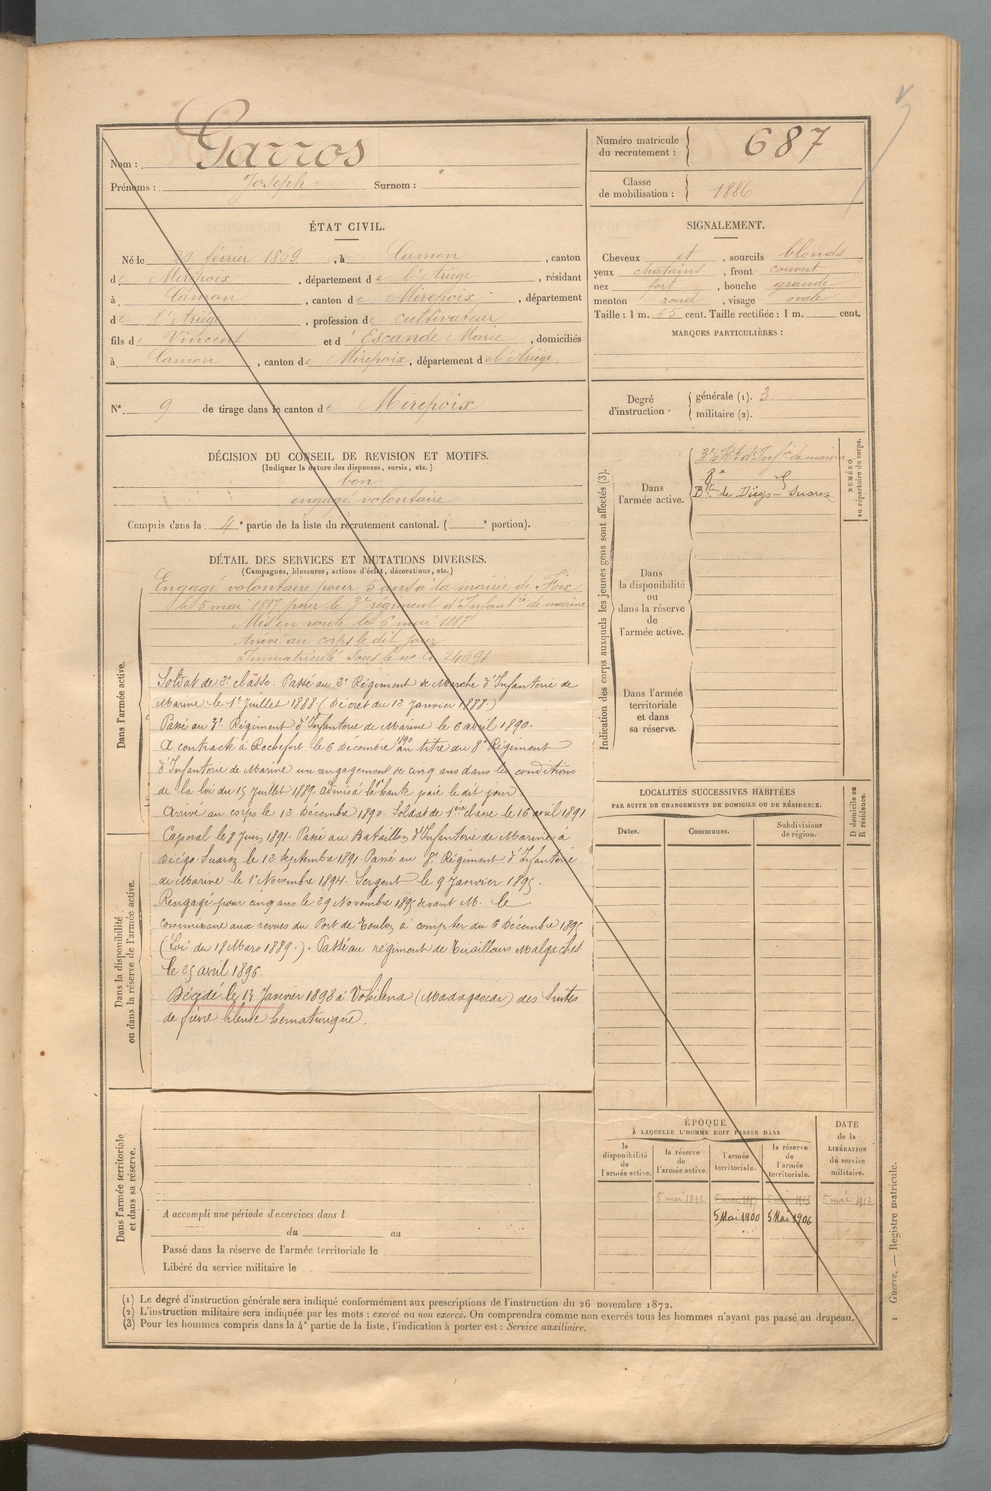 Nom : Garros
Prénoms : Joseph Surnom :
Numéro matricule du recrutement : 687
Classe de mobilisation : 1886
ÉTAT CIVIL.
Né le 20 février 1869, à Camon, canton
de Mirepoix, département de l'Ariège, résidant
à Camon, canton de Mirepoix, département
de l'Ariège, profession de cultivateur
fils de Vincent et d'Escande Marie, domiciliés
à Camon, canton de Mirepoix, département de l'Ariège
SIGNALEMENT.
Cheveux et, sourcils blonds
yeux chatains, front couvert
nez fort, bouche grande
menton rond, visage ovale
Taille : 1 m. 65 cent. Taille rectifiée : 1 m. cent.
MARQUES PARTICULIÈRES :
N° 9 de tirage dans le canton de Mirepoix
Degré d'instruction : générale (1). 3
militaire (2).
DÉCISION DU CONSEIL DE REVISION ET MOTIFS.
(Indiquer la nature des dispenses, sursis, etc.)
bon
engagé volontaire
Compris dans la 4e partie de la liste du recrutement cantonal. ( e portion).
DÉTAIL DES SERVICES ET MUTATIONS DIVERSES.
(Campagnes, blessures, actions d'éclat, décorations, etc.)
Dans l'armée active.
Engagé volontaire pour 5 ans à la mairie de Foix
le 5 mai 1887 pour le 3e régiment d'Infantie de marine
Mis en route le mai 1887
Arrivé au corps le dit jour
Immatriculé sous le no
Soldat de 2e classe. Passé au 2e Régiment de Marche d'Infanterie de
Marine le 1er Juillet 1888 (Décret du 12 Janvier 1888)
Passé au 3e Régiment d'Infanterie de Marine le 6 avril 1890.
A contracté à Rochefort le 6 Décembre 1890 au titre du 8e Régiment
d'Infanterie de Marine un engagement de cinq ans dans les conditions
de la loi du 15 juillet 1889. admis à la haute paie le dit jour
Arrivé au corps le 13 Décembre 1890. Soldat de 1ère classe le 16 avril 1891
Caporal le 8 Juin 1891. Passé au Bataillon d'Infanterie de Marine à
Diégo-Suarez le 12 Septembre 1891. Passé au 8e Régiment d'Infanterie
de Marine le 1er Novembre 1894. Sergent le 9 Janvier 1895.
Rengagé pour cinq ans le 29 Novembre 1895 devant M. le
commissaire aux revues du Port de Toulon à compter du 6 Décembre 1895
(Loi du 18 Mars 1889.). Passé au régiment de Tirailleurs Malgaches
le 25 avril 1896.
Décédé le 13 Janvier 1898 à Vohilena (Madagascar) des suites
de fièvre bilieuse hématurique.
Dans la disponibilité ou dans la réserve de l'armée active.
Dans l'armée territoriale et dans sa réserve.
A accompli une période d'exercices dans l
du au
Passé dans la réserve de l'armée territoriale le
Libéré du service militaire le
Indication des corps auxquels les jeunes gens sont affectés (3).
NUMÉRO au répertoire du corps.
Dans l'armée active.
3e Rt d'Infie de marine
Bon de Diégo-Suarez
Dans la disponibilité ou dans la réserve de l'armée active.
Dans l'armée territoriale et dans sa réserve.
LOCALITÉS SUCCESSIVES HABITÉES
PAR SUITE DE CHANGEMENTS DE DOMICILE OU DE RÉSIDENCE.
Dates. Communes. Subdivisions de région. D domicile ou R résidence.
ÉPOQUE
À LAQUELLE L'HOMME DOIT PASSER DANS
la disponibilité de l'armée active.
la réserve de l'armée active.
l'armée territoriale.
la réserve de l'armée territoriale.
DATE de la LIBÉRATION du service militaire.
5 mai 1892 5 mai 1897 5 mai 1903 5 mai 1912
5 Mai 1900 5 Mai 1906
(1) Le degré d'instruction générale sera indiqué conformément aux prescriptions de l'instruction du 26 novembre 1872.
(2) L'instruction militaire sera indiquée par les mots : exercé ou non exercé. On comprendra comme non exercés tous les hommes n'ayant pas passé au drapeau.
(3) Pour les hommes compris dans la 4e partie de la liste, l'indication à porter est : Service auxiliaire.
1 Guerre. — Registre matricule.